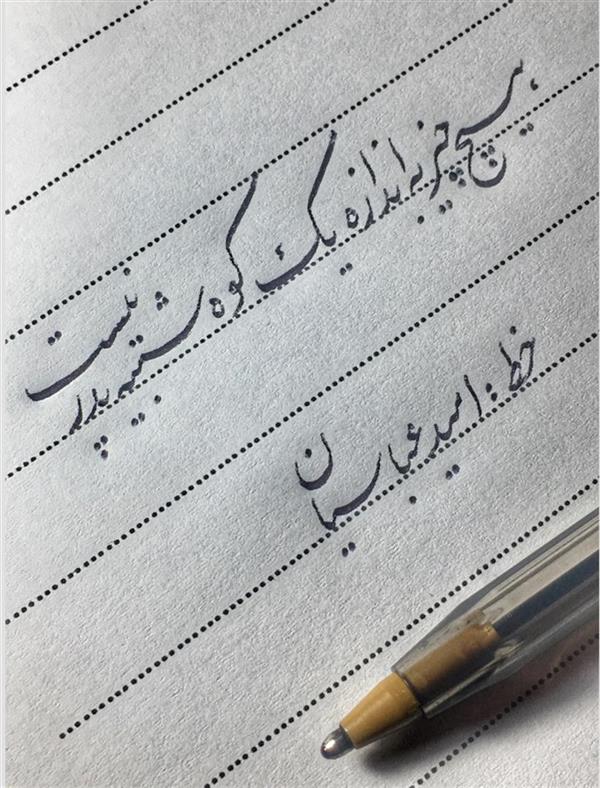 هیچ چیز به اندازه یک کوه شبیه پدر نیست
خط: امید عباسیان